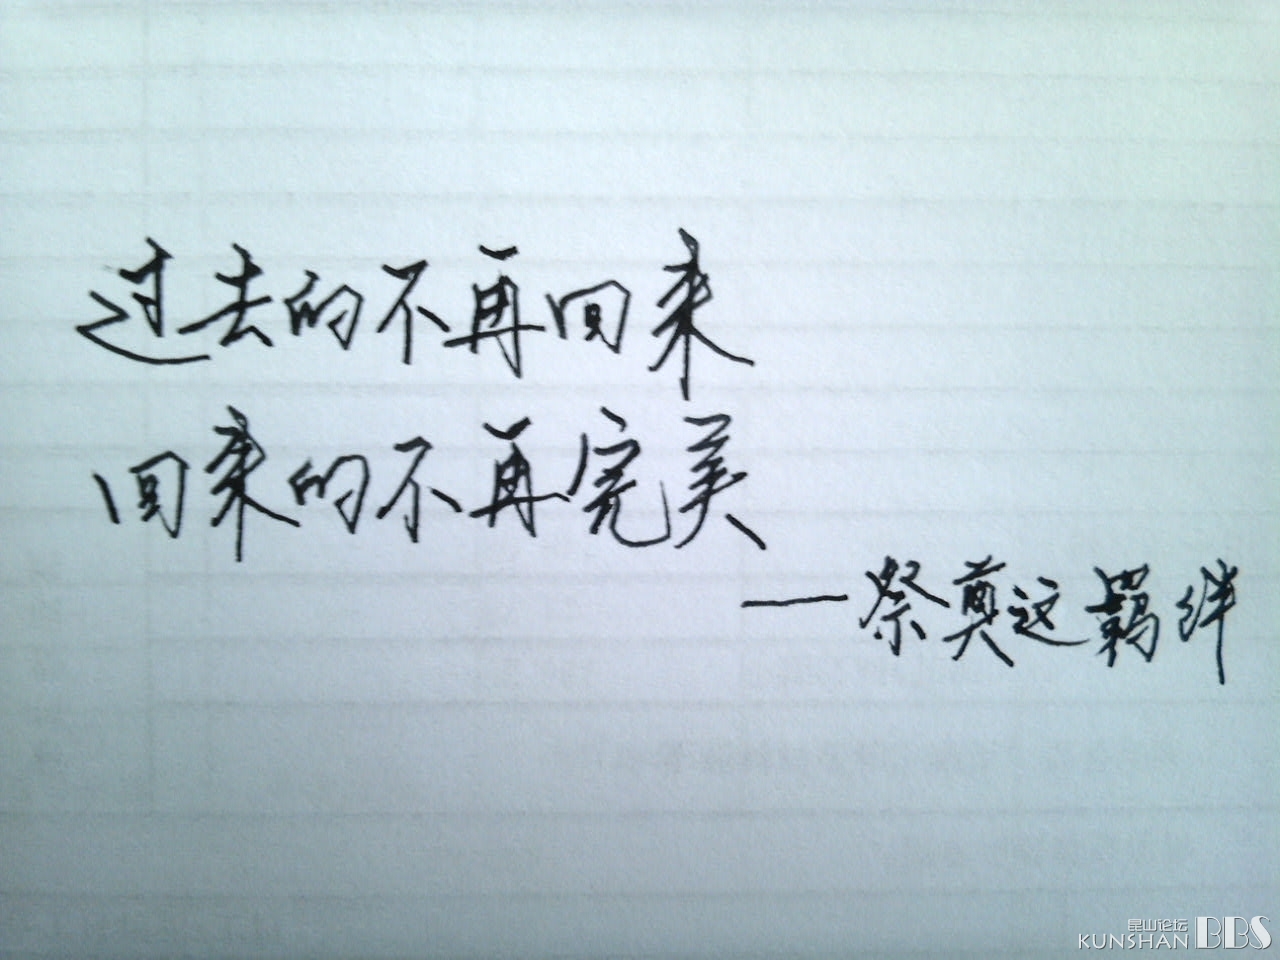 过去的不再回来
回来的不再完美
——祭奠这羁绊
昆山论坛
KUNSHAN BBS